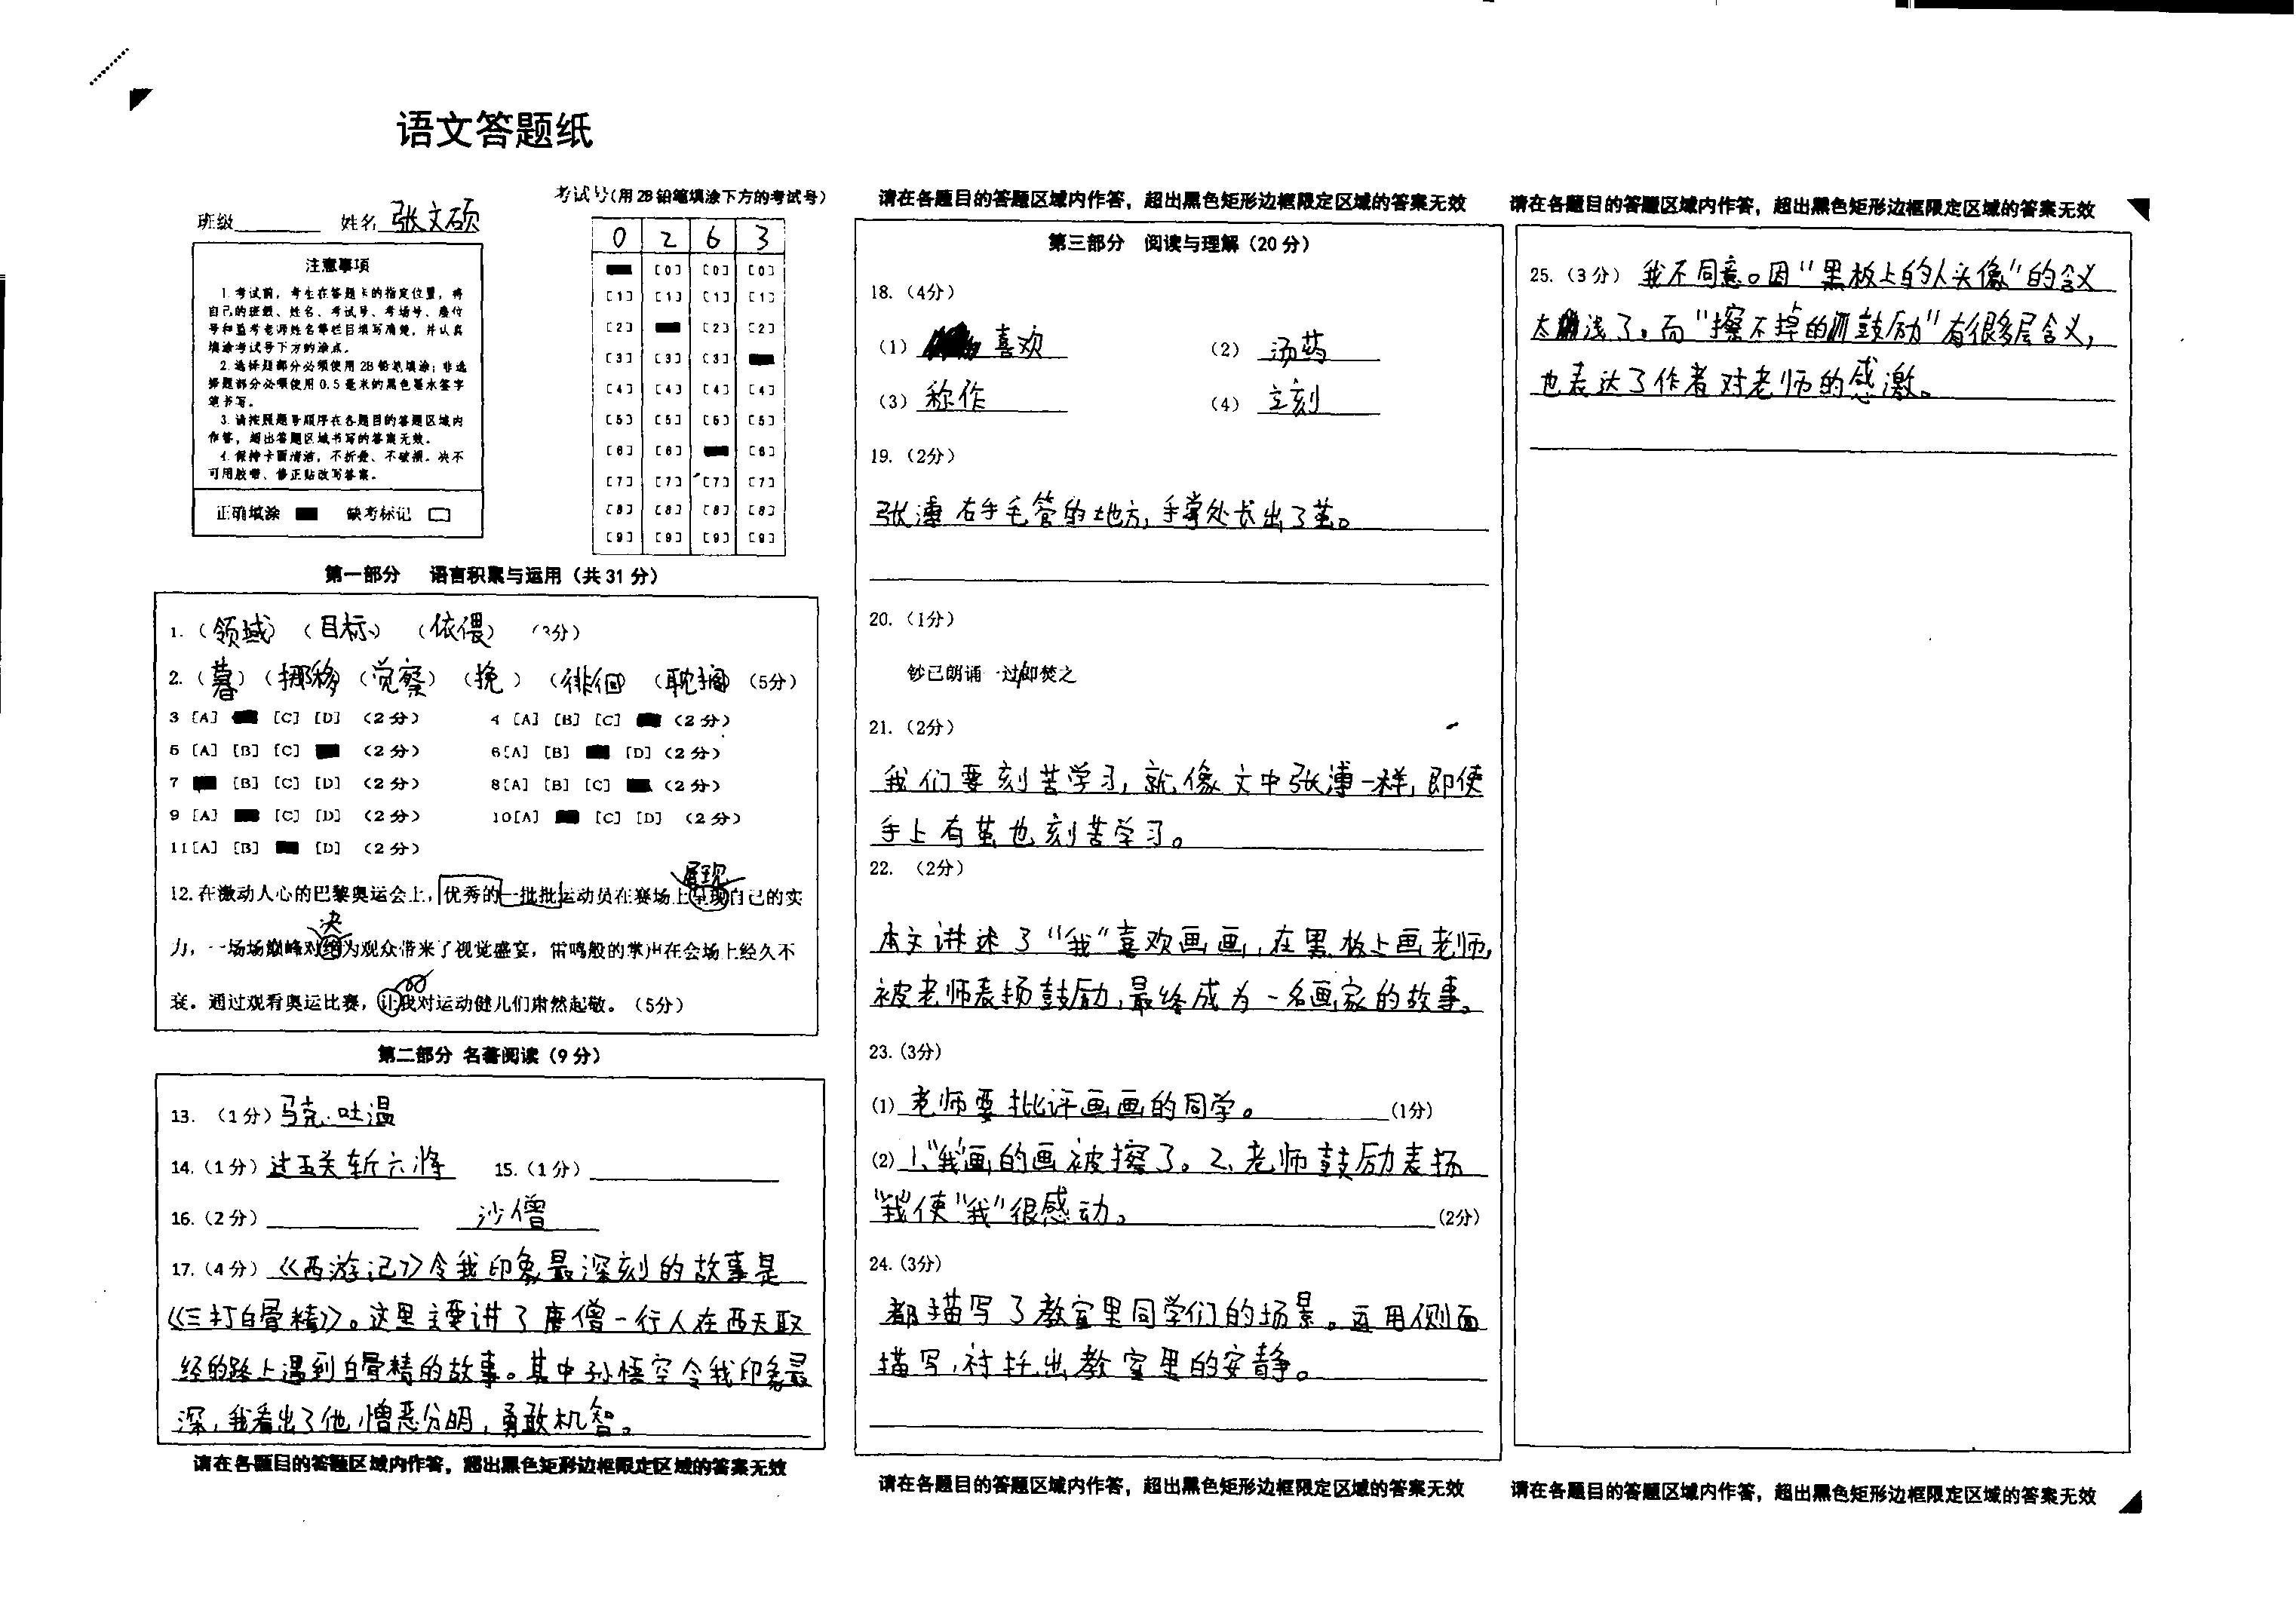 语文答题纸
班级 姓名 张文硕
考试号(用2B铅笔填涂下方的考试号)
0 2 6 3
[0] [0] [0]
[1] [1] [1] [1]
[2] [2] [2]
[3] [3] [3]
[4] [4] [4] [4]
[5] [5] [5] [5]
[6] [6] [6]
[7] [7] [7] [7]
[8] [8] [8] [8]
[9] [9] [9] [9]
注意事项
1.考试前，考生在答题卡的指定位置，将
自己的班级、姓名、考试号、考场号、座位
号和监考老师姓名等栏目填写清楚，并认真
填涂考试号下方的涂点。
2.选择题部分必须使用2B铅笔填涂；非选
择题部分必须使用0.5毫米的黑色墨水签字
笔书写。
3.请按照题号顺序在各题目的答题区域内
作答，超出答题区域书写的答案无效。
4.保持卡面清洁，不折叠、不破损。决不
可用胶带、修正贴改写答案。
正确填涂 缺考标记
第一部分 语言积累与运用（共31分）
1.（领域）（目标）（依偎）（3分）
2.（暮）（挪移）（觉察）（挽）（徘徊）（耽搁）（5分）
3 [A] [C] [D] （2分） 4 [A] [B] [C] （2分）
5 [A] [B] [C] （2分） 6[A] [B] [D]（2分）
7 [B] [C] [D] （2分） 8[A] [B] [C] （2分）
9 [A] [C] [D] （2分） 10[A] [C] [D] （2分）
11[A] [B] [D] （2分）
展现
12.在激动人心的巴黎奥运会上，优秀的一批批运动员在赛场上呈现自己的实
决
力，一场场巅峰对绝为观众带来了视觉盛宴，雷鸣般的掌声在会场上经久不
衰。通过观看奥运比赛，让我对运动健儿们肃然起敬。（5分）
第二部分 名著阅读（9分）
13.（1分）马克·吐温
14.（1分）过五关斩六将 15.（1分）
16.（2分） 沙僧
17.（4分）《西游记》令我印象最深刻的故事是
《三打白骨精》。这里主要讲了唐僧一行人在西天取
经的路上遇到白骨精的故事。其中孙悟空令我印象最
深，我看出了他憎恶分明，勇敢机智。
请在各题目的答题区域内作答，超出黑色矩形边框限定区域的答案无效
请在各题目的答题区域内作答，超出黑色矩形边框限定区域的答案无效
第三部分 阅读与理解（20分）
18.（4分）
（1）喜欢 （2）汤药
（3）称作 （4）立刻
19.（2分）
张溥右手毛管的地方，手掌处长出了茧。
20.（1分）
钞已朗诵一过/即焚之
21.（2分）
我们要刻苦学习，就像文中张溥一样，即使
手上有茧也刻苦学习。
22.（2分）
本文讲述了“我”喜欢画画，在黑板上画老师，
被老师表扬鼓励，最终成为一名画家的故事。
23.(3分)
(1) 老师要批评画画的同学。 (1分)
(2) 1、“我”画的画被擦了。2、老师鼓励表扬
“我”使“我”很感动。 (2分)
24.(3分)
都描写了教室里同学们的场景。运用侧面
描写，衬托出教室里的安静。
请在各题目的答题区域内作答，超出黑色矩形边框限定区域的答案无效
请在各题目的答题区域内作答，超出黑色矩形边框限定区域的答案无效
25.（3分）我不同意。因“黑板上的人头像”的含义
太浅了。而“擦不掉的鼓励”有很多层含义，
也表达了作者对老师的感激。
请在各题目的答题区域内作答，超出黑色矩形边框限定区域的答案无效